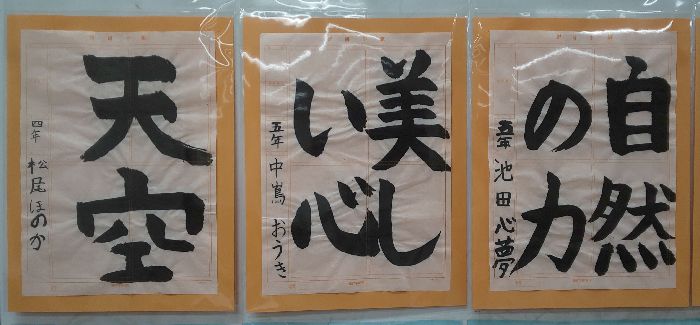 天空
四年 松尾ほのか
美し
い心
五年 中嶌 おうき
自然
の力
五年 池田心夢